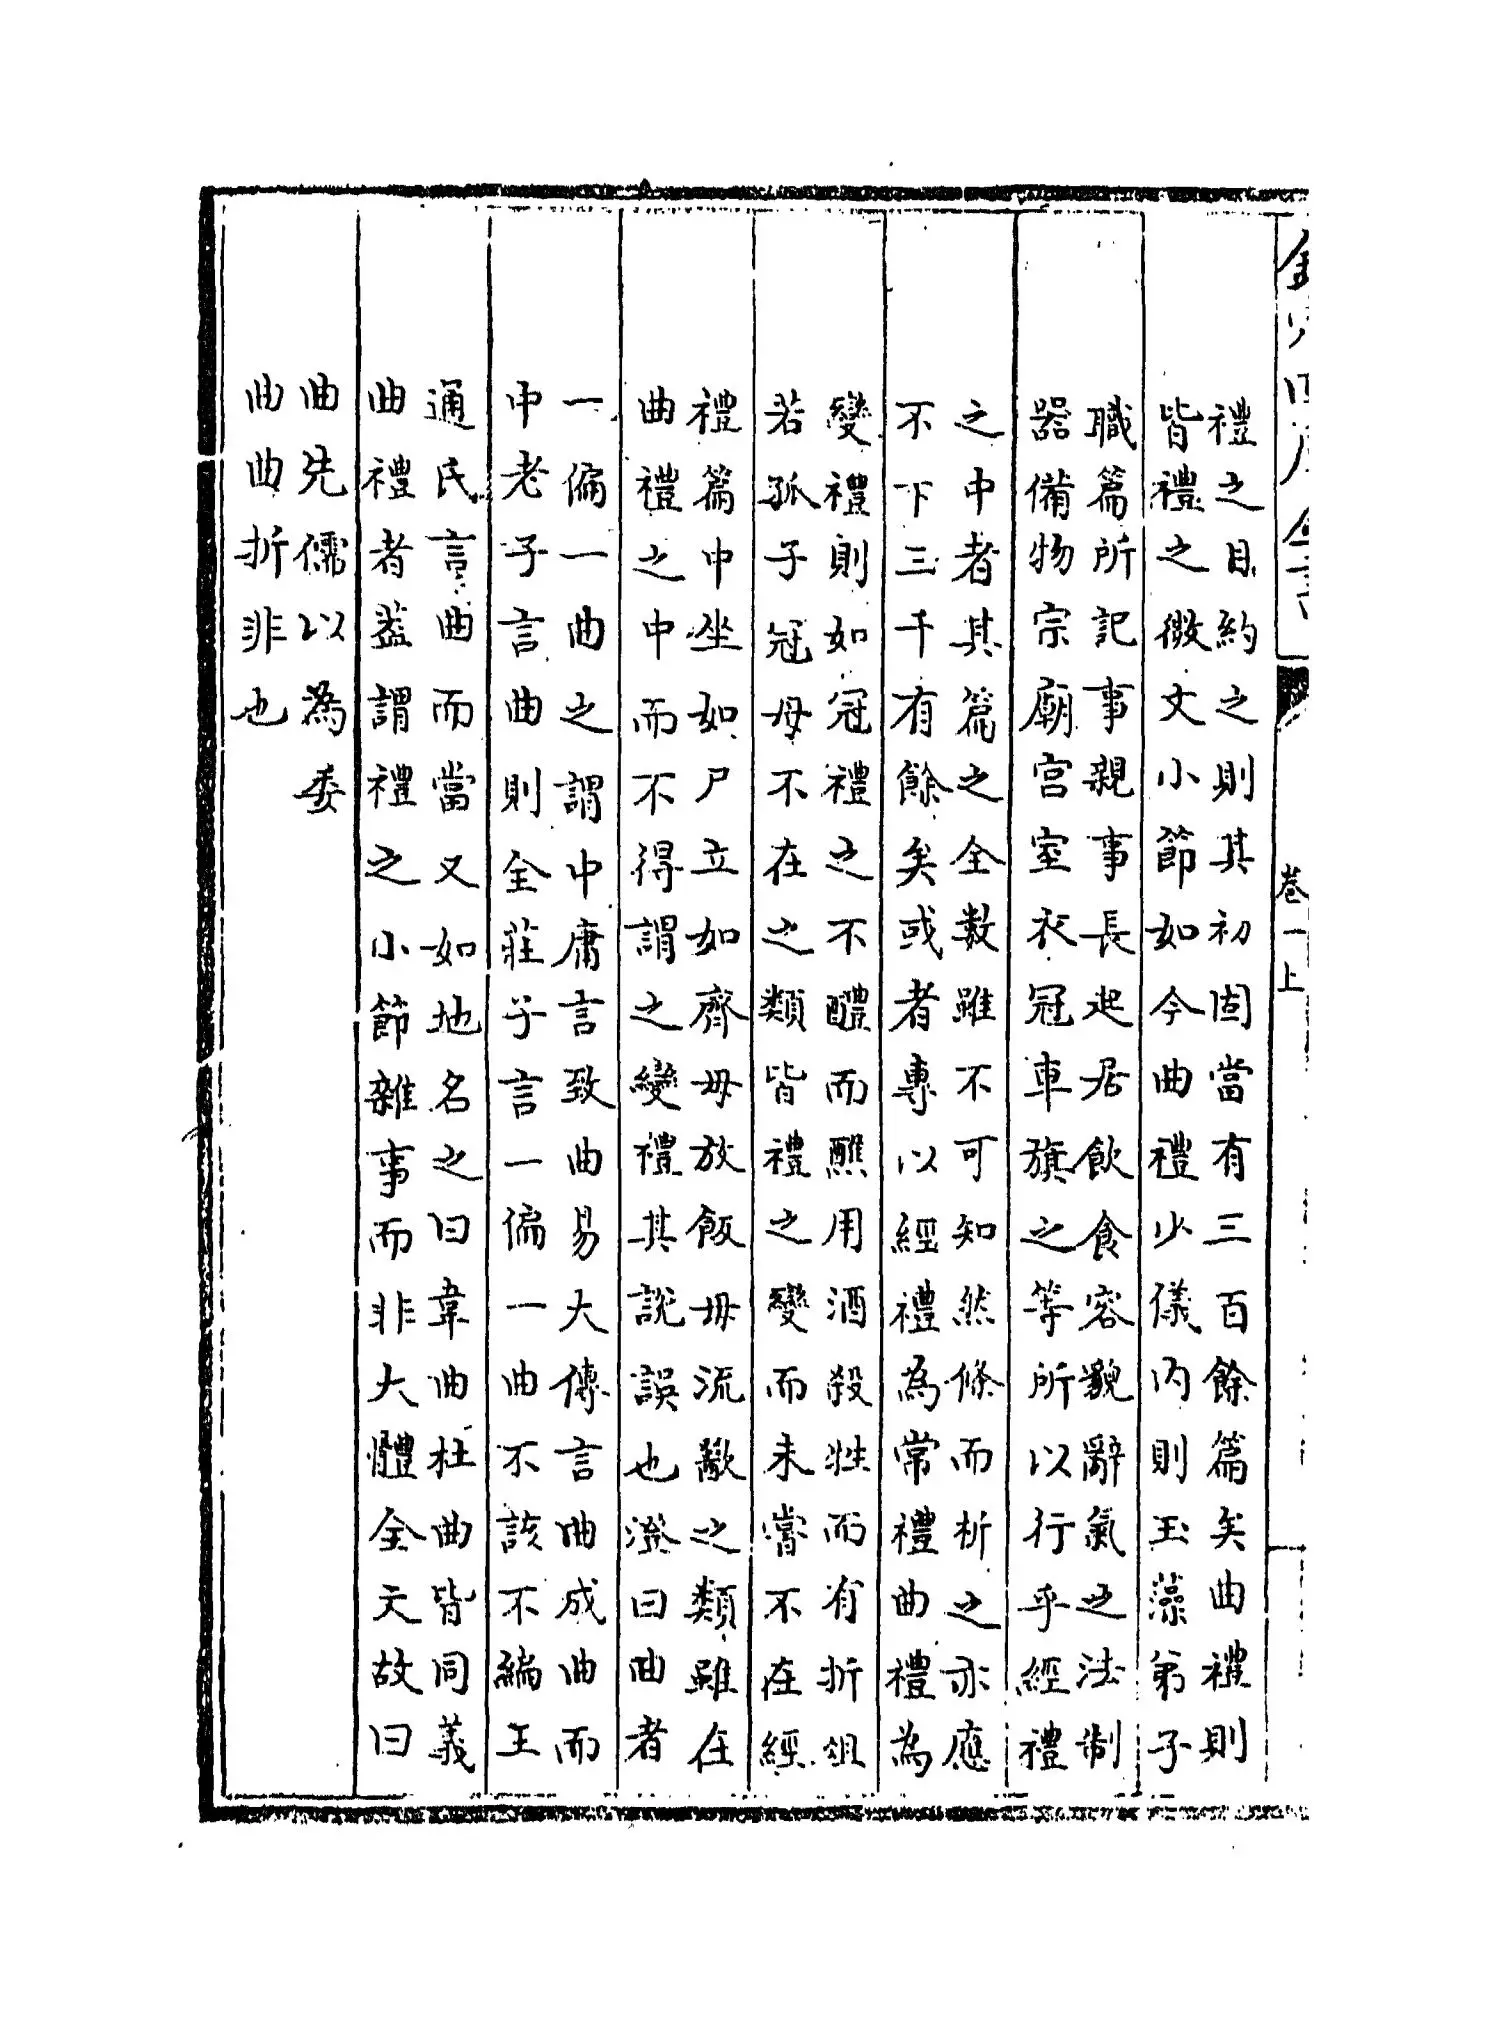 卷一上
禮之目約之則其初固當有三百餘篇矣曲禮則
皆禮之微文小節如今曲禮少儀内則玉藻弟子
職篇所記事親事長起居飲食容貌辭氣之法制
器備物宗廟宮室衣冠車旗之等所以行乎經禮
之中者其篇之全數雖不可知然條而析之亦應
不下三千有餘矣或者專以經禮為常禮曲禮為
變禮則如冠禮之不醴而醮用酒殺牲而有折俎
若孤子冠母不在之類皆禮之變而未嘗不在經
禮篇中坐如尸立如齊毋放飯毋流歠之類雖在
曲禮之中而不得謂之變禮其說誤也澄曰曲者
一偏一曲之謂中庸言致曲易大傳言曲成曲而
中老子言曲則全莊子言一偏一曲不該不編王
通氏言曲而當又如地名之曰韋曲杜曲皆同義
曲禮者葢謂禮之小節雜事而非大體全文故曰
曲先儒以為委
曲曲折非也